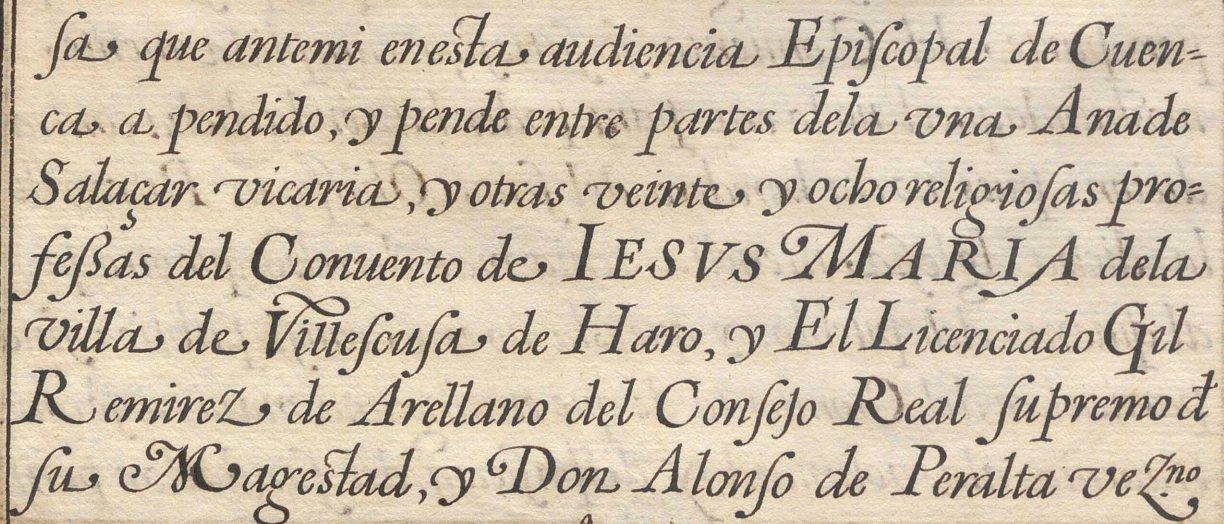 sa que antemi enesta audiencia Episcopal de Cuen=
ca a pendido, y pende entre partes dela vna Anade
Salaçar vicaria, y otras veinte y ocho religiosas pro=
feßas del Conuento de IESVS MARIA dela
villa de Villescusa de Haro, y El Licenciado Gil
Remirez de Arellano del Consejo Real supremo đ
su Magestad, y Don Alonso de Peralta vezno